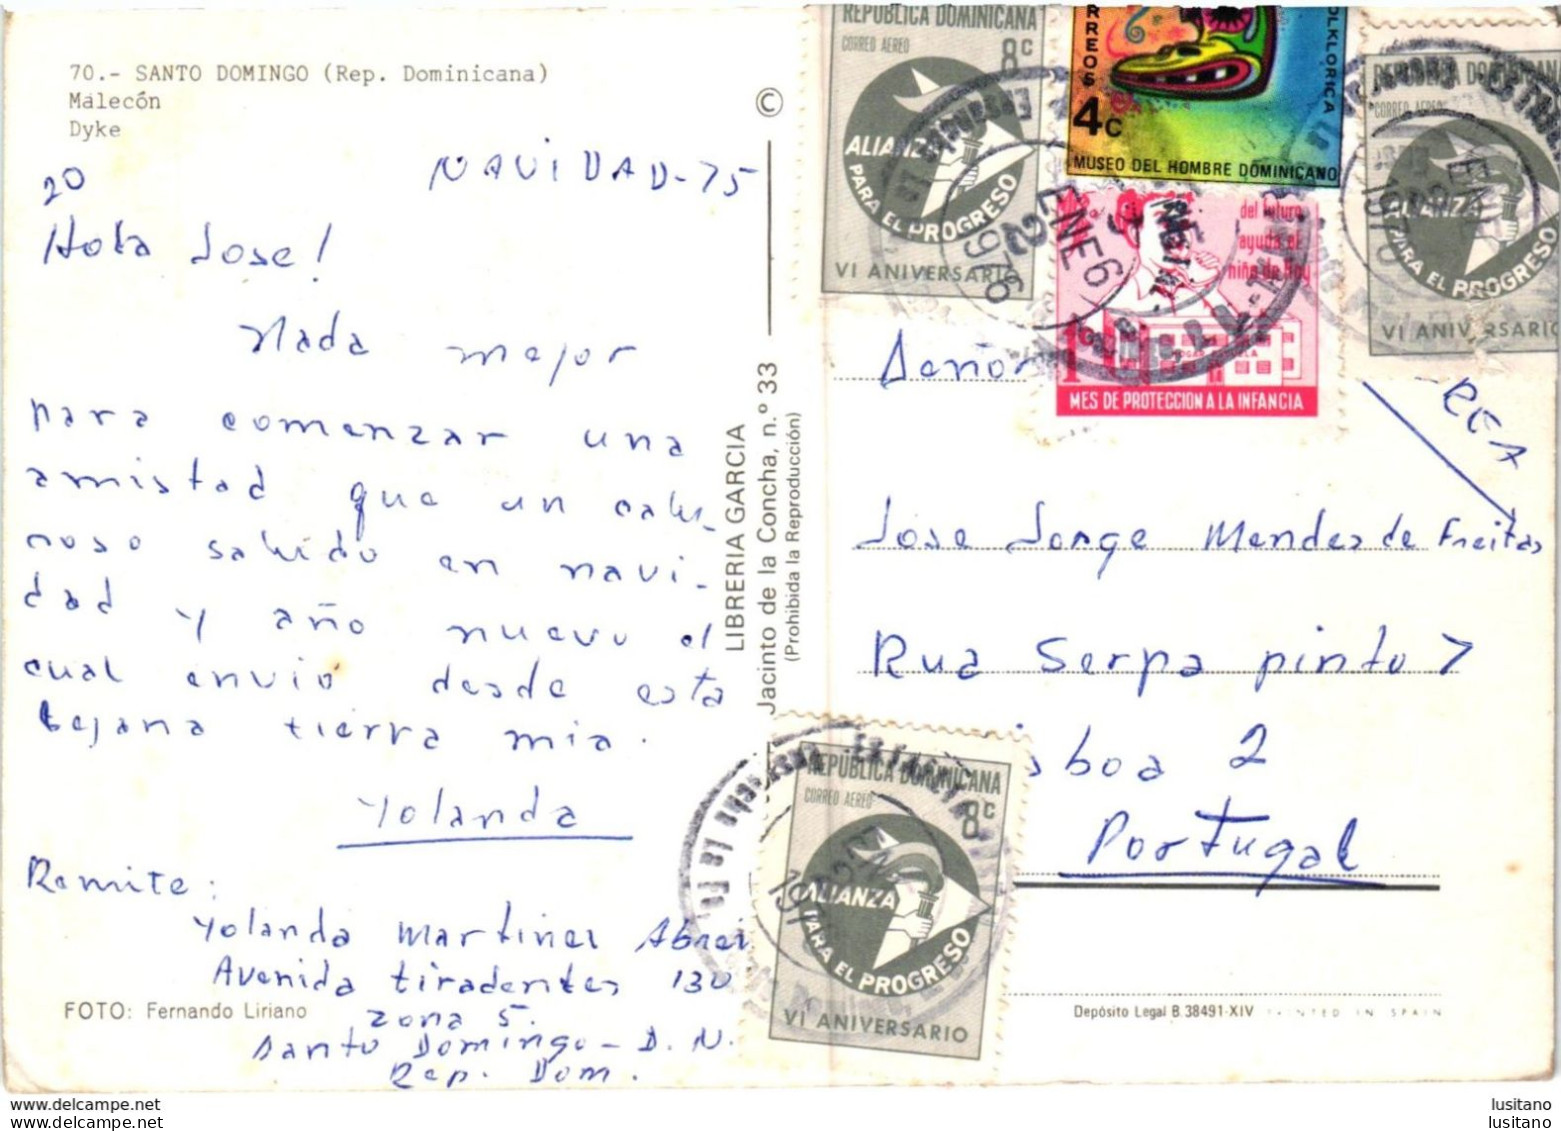 70.- SANTO DOMINGO (Rep. Dominicana)
Malecón
Dyke
20
NAVIDAD-75
Hola Jose!
Nada mejor
para comenzar una
amistad que un calu-
roso saludo en navi-
dad y año nuevo el
cual envio desde esta
lejana tierra mia.
Yolanda
Remite:
Yolanda Martinez Abreu
Avenida tiradentes 130
zona 5.
Santo Domingo - D. N.
Rep. Dom.
FOTO: Fernando Liriano
©
LIBRERIA GARCIA
Jacinto de la Concha, n.º 33
(Prohibida la Reproducción)
REPUBLICA DOMINICANA
CORREO AEREO 8c
ALIANZA
PARA EL PROGRESO
VI ANIVERSARIO
CORREOS
4c
FOLKLORICA
MUSEO DEL HOMBRE DOMINICANO
del futuro
ayuda al
niño de Hoy
1c
MES DE PROTECCION A LA INFANCIA
ENE 6
1976
REPUBLICA DOMINICANA
CORREO AEREO
ALIANZA
PARA EL PROGRESO
VI ANIVERSARIO
Señor
Jose Jorge Mendes de Freitas
Rua Serpa pinto 7
isboa 2
Portugal
REPUBLICA DOMINICANA
CORREO AEREO 8c
ALIANZA
PARA EL PROGRESO
VI ANIVERSARIO
Depósito Legal B. 38491-XIV PRINTED IN SPAIN
lusitano
lusitano